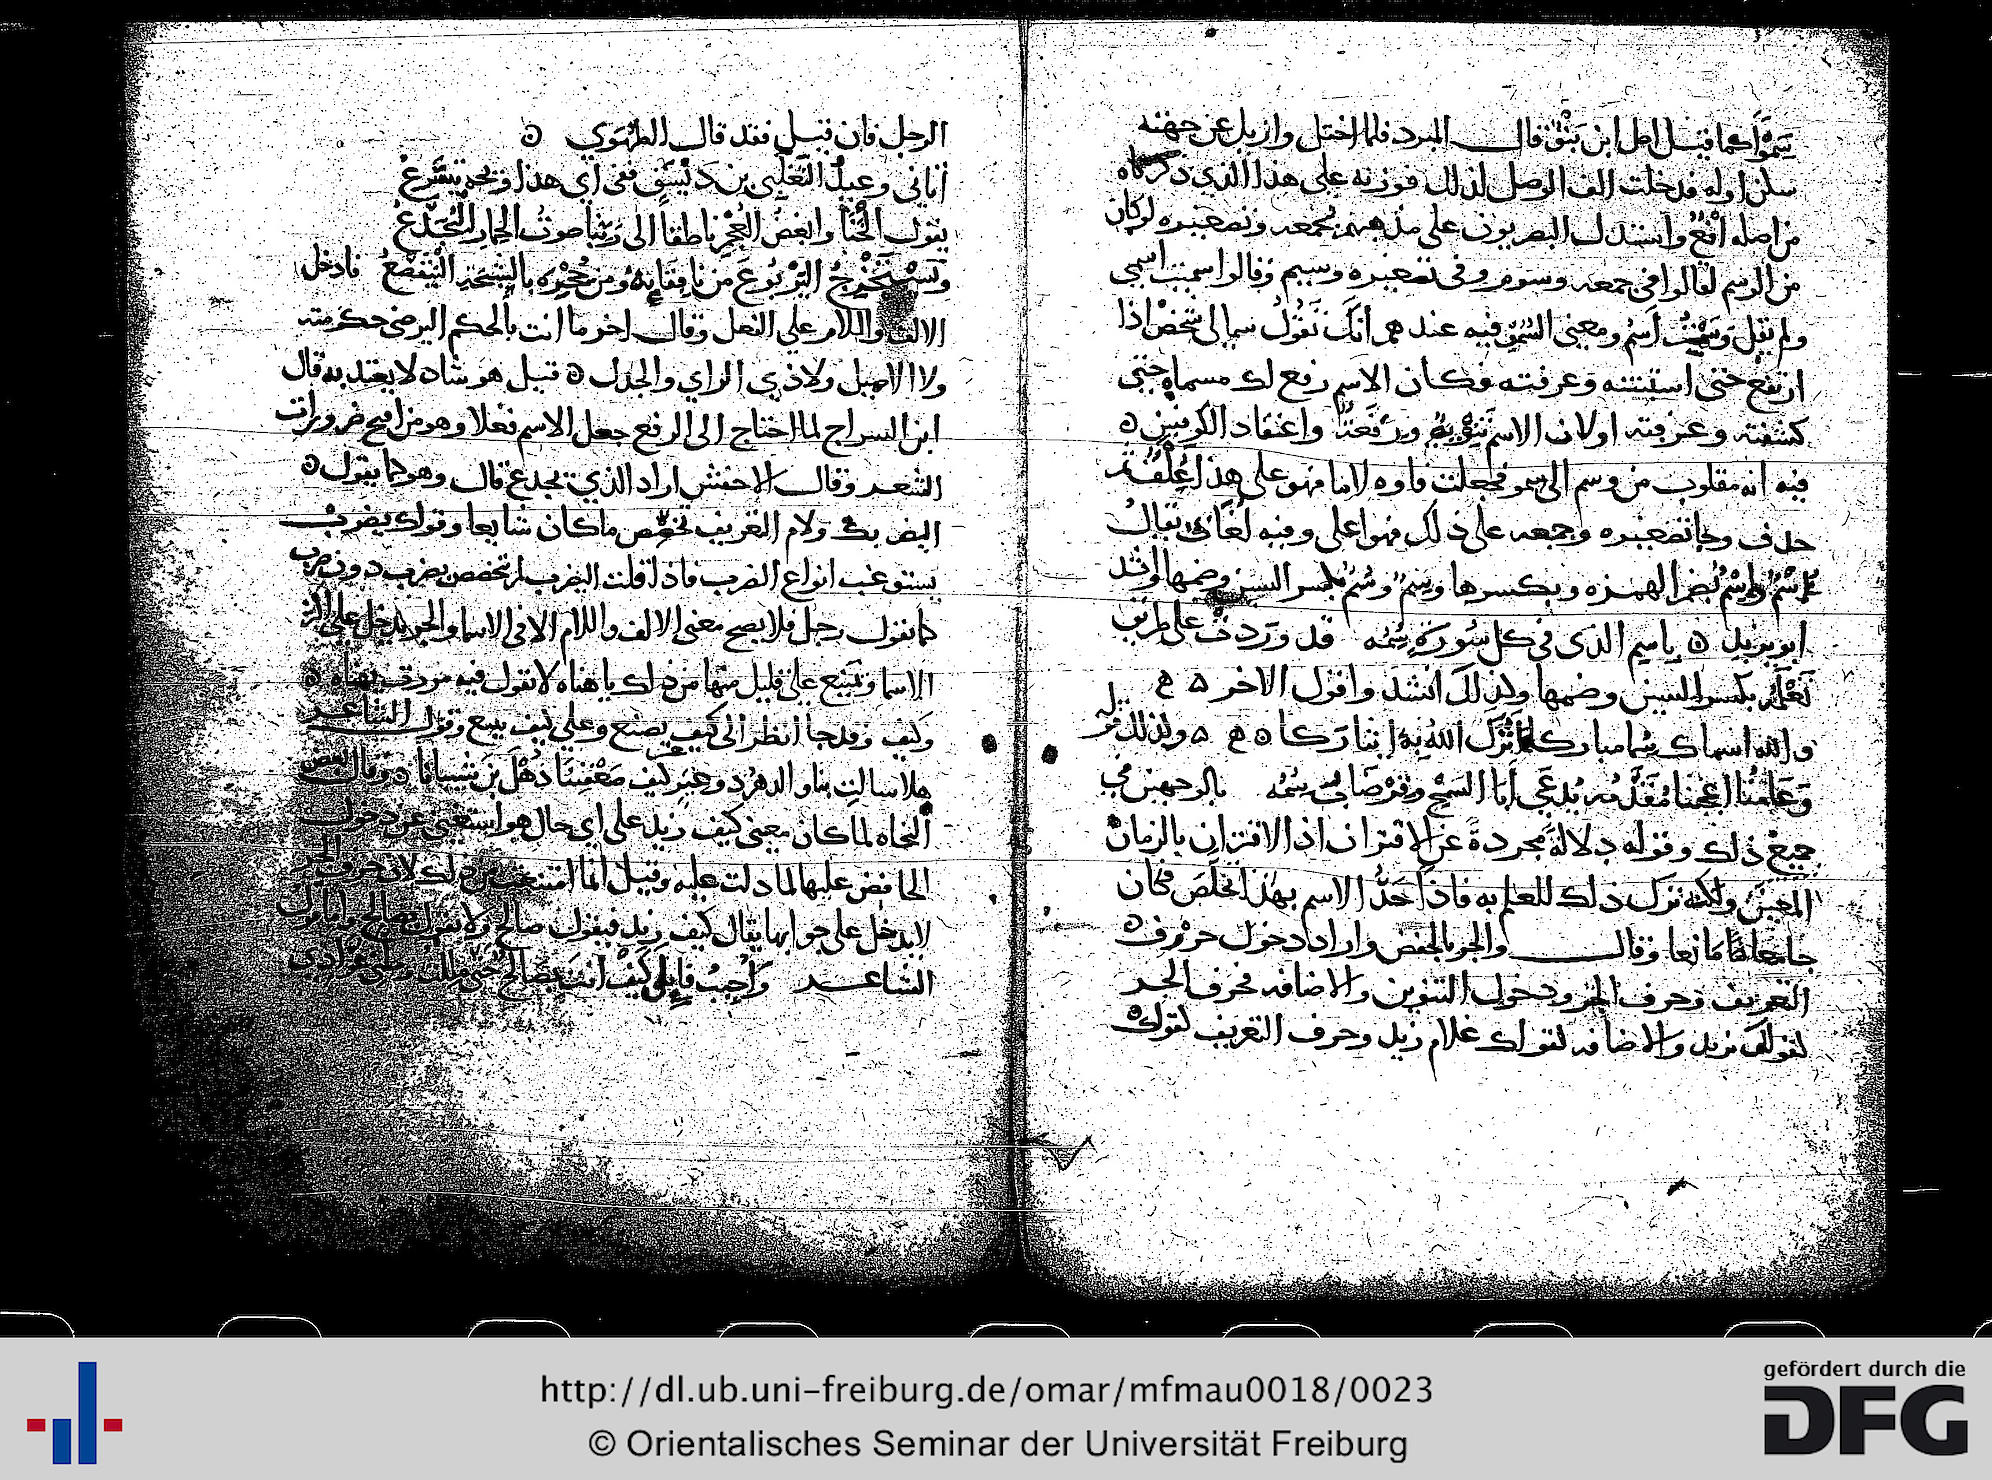 سموا كما قيل اصل ابن بنو قال المبرد فلما اختل وازيل عن جهته
سكن اوله فدخلت الف الوصل لذلك فوزنه على هذا الذي ذكرناه
من اصله افع واستدل البصريون على مذهبهم بجمعه وتصغيره لو كان
من الوسم لقالوا في جمعه وسوم وفي تصغيره وسيم وقالوا سميت اسمي
ولم يقل وسمت اسم ومعنى السمو فيه عند هم انك تقول سما الى شخص اذا
ارتفع حتى استبنته وعرفته فكان الاسم رفع لك مسماه حتى
كشفته وعرفته اولان الاسم تنويه ورفعة واعتقاد الكوفيين
فيه انه مقلوب من وسم الى سمو فجعلت فاوه لاما فهو على هذا
حذف وجا تصغيره وجمعه على ذلك فهو اعلى وفيه لغات يقال
اسم واسم بضم الهمزه وبكسرها وسم وسم بكسر السين وضمها وانشد
ابو زيد باسم الذي في كل سورة سمه قد وردت على طريق
تعلمه بكسر السين وضمها ولذلك انشد واقول الاخر
والله اسماك سما مباركا اثرك الله به ايثاركا ولذلك قوله
وعامنا اعجبنا مقدمه يدعى ابا السمح وقرضاب سمه بالوجهين في
جميع ذلك وقوله دلالة مجردة عن الاقتران اذ الاقتران بالزمان
المعين ولكنه ترك ذلك للعلم به فاذا حد الاسم بهذا تخلص فكان
جامعا مانعا وقال والجر بالخفض واراد دخول حرف
التعريف وحرف الجر ودخول التنوين والاضافه فحرف الجر
لقولك بزيد والاضافه لقولك غلام زيد وحرف التعريف لقولك
الرجل فان قيل فقد قال الطهوي
اتاني وعيد التغلبي بن ديسق ففي اي هذا ويحه يتسرع
يقول الخنا وابغض العجم ناطقا الى ربنا صوت الحمار اليجدع
ويستخرج اليربوع من نافقائه ومن جحره بالشيحة اليتقصع فادخل
الالف واللام على الفعل وقال اخر ما انت بالحكم الترضى حكومته
ولا الاصيل ولا ذي الراي والجدل قيل هو شاذ لا يعتد به قال
ابن السراج لما احتاج الى الرفع جعل الاسم فعلا وهو من اقبح ضرورات
الشعر وقال الاخفش اراد الذي يجدع قال وهو كما يقول
اليضربك ولام التعريف تخصص ما كان شايعا وقولك يضرب
يستوعب انواع الضرب فاذا قلت اليضرب لم تخصص بضرب دون ضرب
كما تقول رجل فلا يصح معنى الالف واللام الا في الاسما والجر يدخل على اكثر
الاسما ويمتنع على قليل منها من ذلك يا هناه لا تقول فيه مررت بهناه
وكيف وقد جا انظر الى كيف يصنع وعلى كيف يبيع وقول الشاعر
هلا سالت بنا والدهر ذو عبر كيف صنعنا ذهل بن شيبانا وقال بعض
النحاه لما كان معنى كيف زيد على اي حال هو استغني عن دخول
الخافض عليها لما دلت عليه وقيل انما امتنعت من ذلك لان حرف الجر
لا يدخل على جوابها يقال كيف زيد فيقول صالح ولا يقول بصالح واما قول
الشاعر واجبت قايل كيف انت بصالح حتى مللت وملني عوادي
http://dl.ub.uni-freiburg.de/omar/mfmau0018/0023
© Orientalisches Seminar der Universität Freiburg
gefördert durch die
DFG